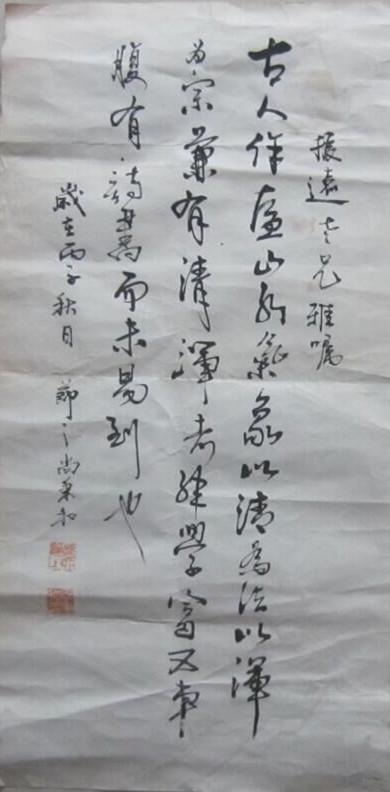 振遠老兄雅嘱
古人作畫山水氣象以清為法以渾
為宗兼有清渾者縱學富五車
腹有詩書而未易到也
歲在丙子秋日 節之尚秉和